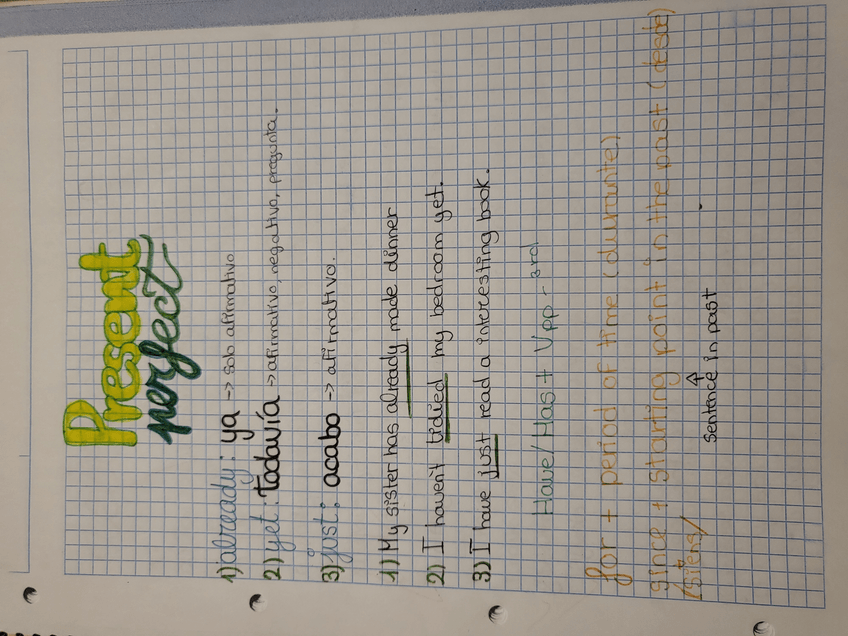 Present
perfect
1) already: ya -> sob afirmativo
2) yet: Todavía -> afirmativo, negativo, pregunta.
3) just: acabo -> afirmativo.
1) My sister has already made dinner
2) I haven't tidied my bedroom yet.
3) I have just read a interesting book.
Have/Has + Vpp - 3rd
for + period of time (durante)
since + starting point in the past (desde)
sentence in past